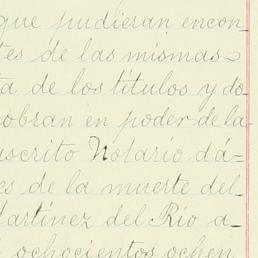 que pudieran encon-
tes de las mismas=
ta de los títulos y do-
obran en poder de la
uscrito Notario dá=
es de la muerte del
Martínez del Río a-
ochocientos ochen